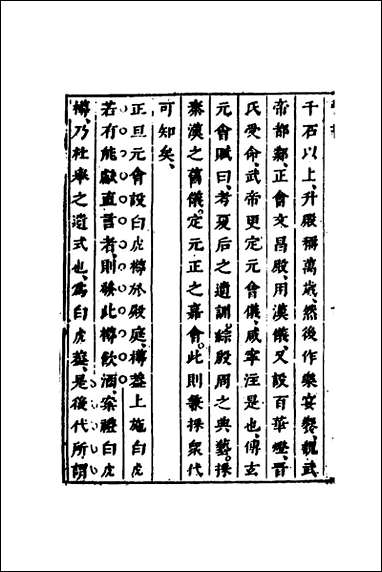 千石以上、升殿稱萬歲、然後作樂宴饗、魏武
帝都鄴、正會文昌殿、用漢儀、又設百華燈、晉
氏受命、武帝更定元會儀、咸寧注是也、傅玄
元會賦曰、考夏后之遺訓、綜殷周之典藝。採
秦漢之舊儀。定元正之嘉會。此則兼採衆代
可知矣、
正旦元會設白虎樽於殿庭、樽蓋上施白虎
若有能獻直言者、則發此樽飲酒、案禮白虎
樽、乃杜舉之遺式也、爲白虎蓋、是後代所謂